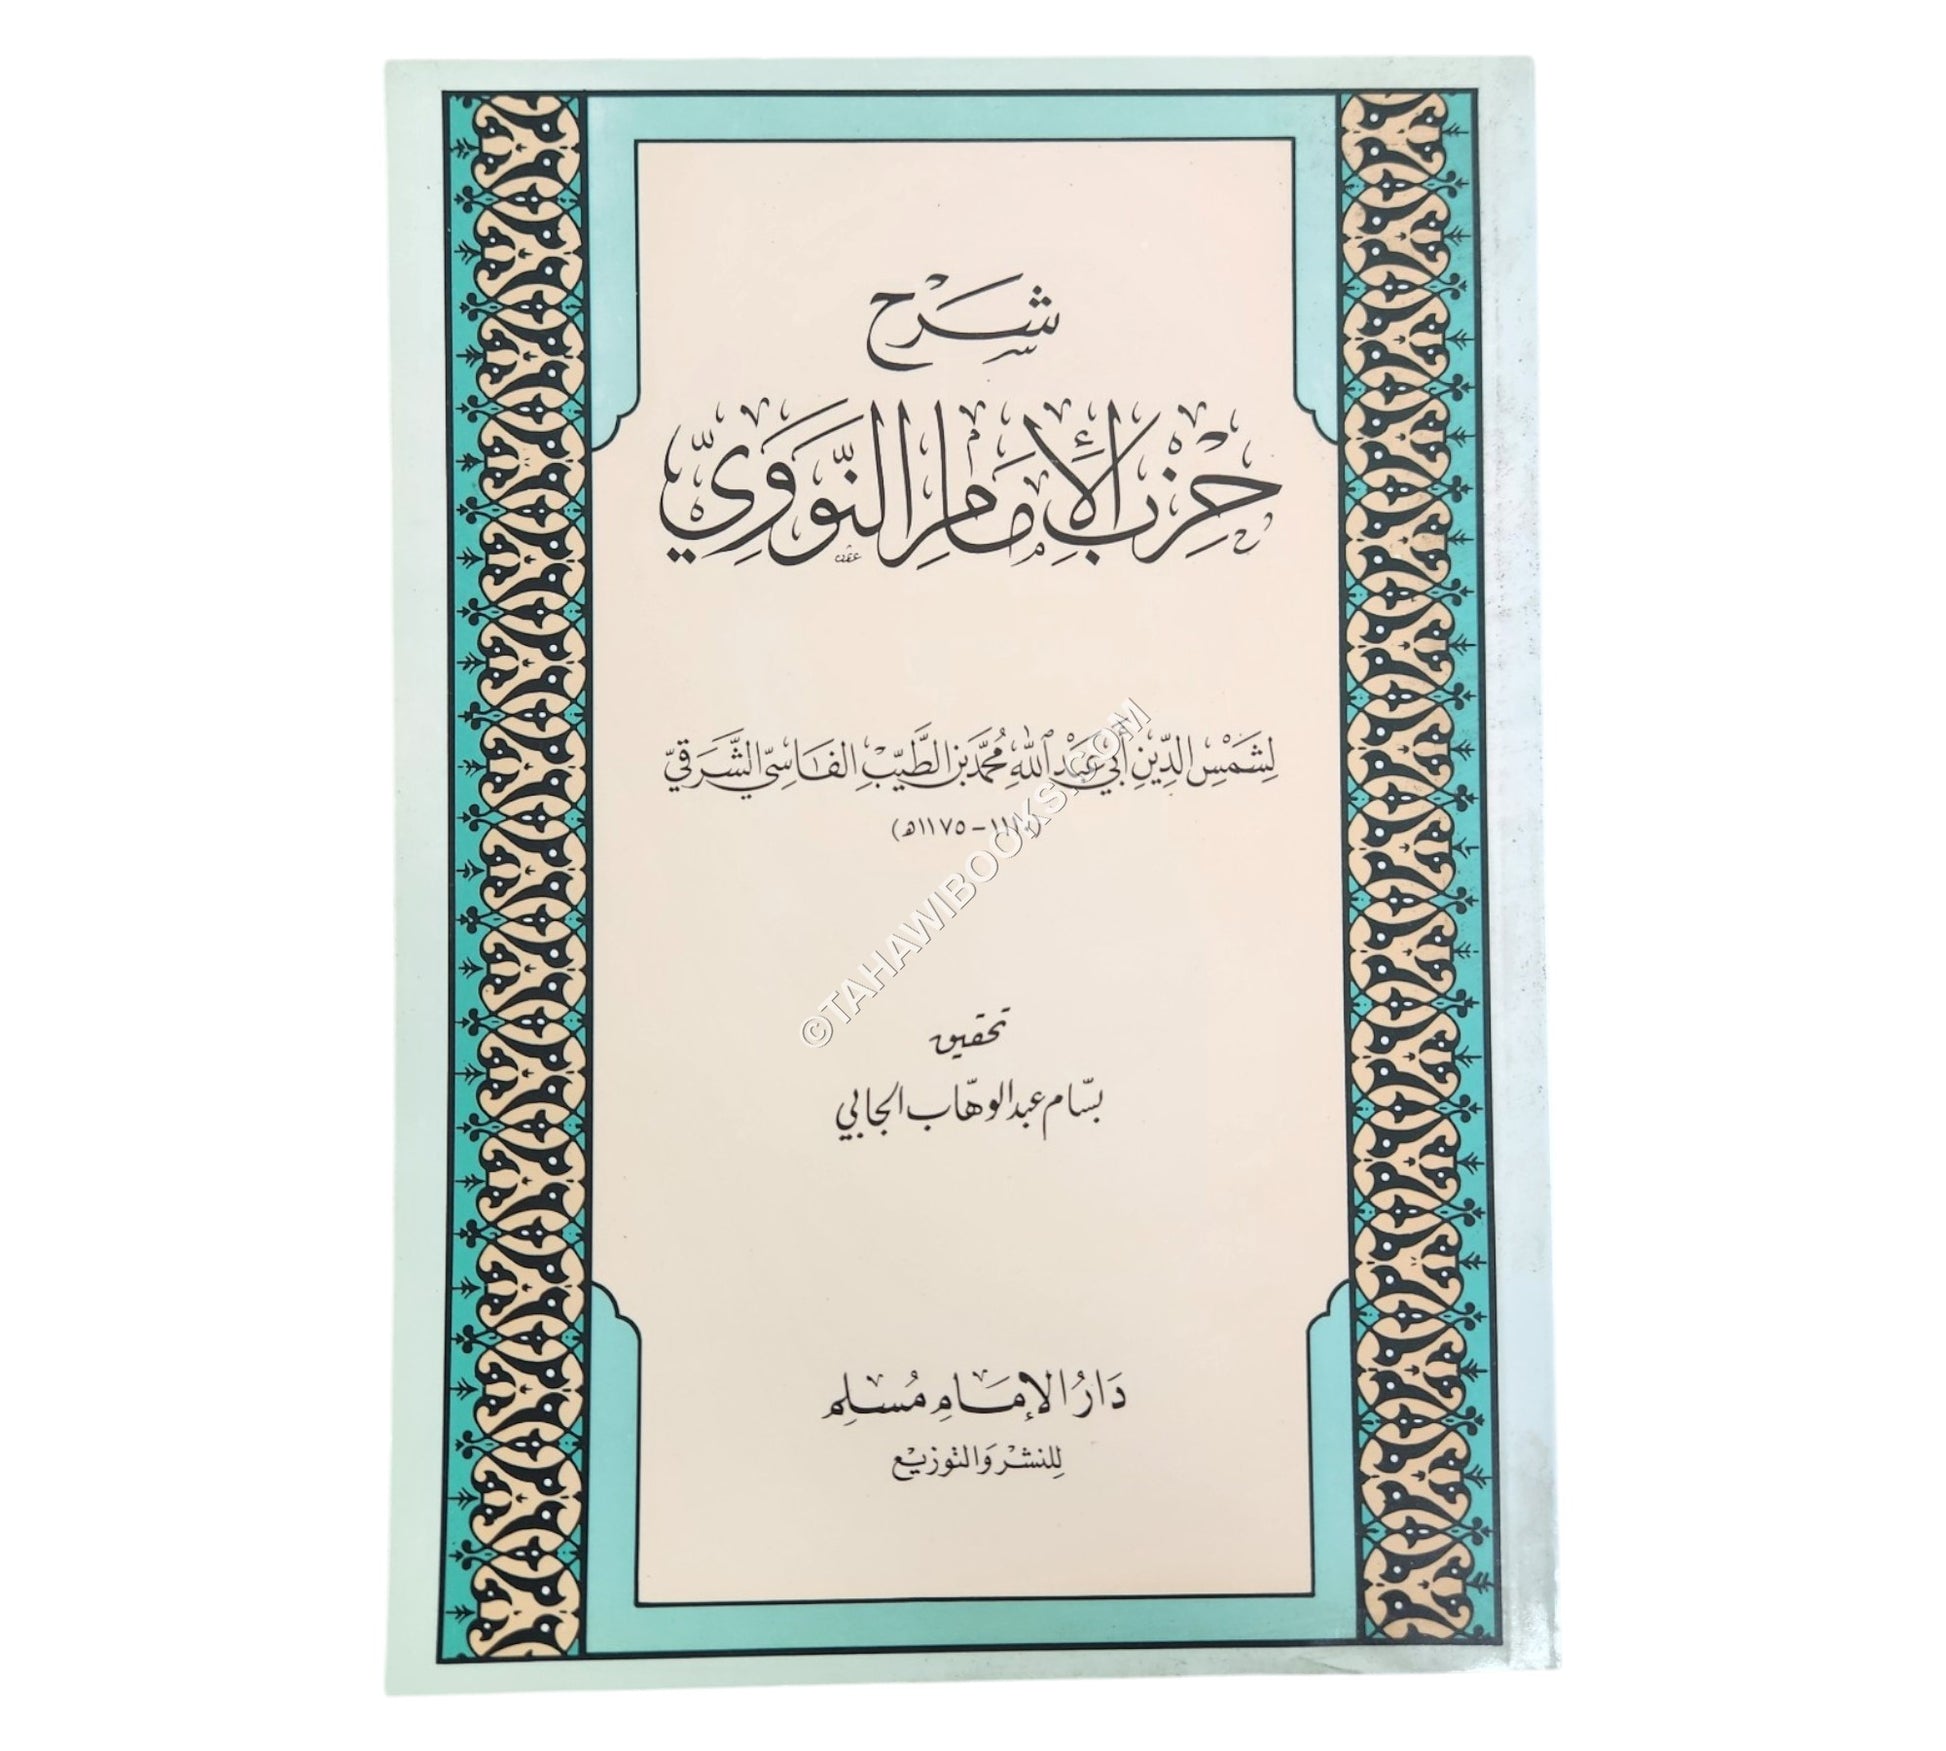 شَرْح
حِزْبُ الْإِمَامِ النَّوَوِيّ
لِشَمْسِ الدِّينِ أَبِي عَبْدِ اللّٰهِ مُحَمَّد بْنِ الطَّيِّبِ الفَاسِيّ الشَّرَقِيّ
١١٧٥هـ)
تحقيق
بسّام عبد الوهّاب الجابي
دَارُ الإِمَامِ مُسْلِم
لِلنشْر وَالتوزيع
©TAHAWIBOOKS.COM